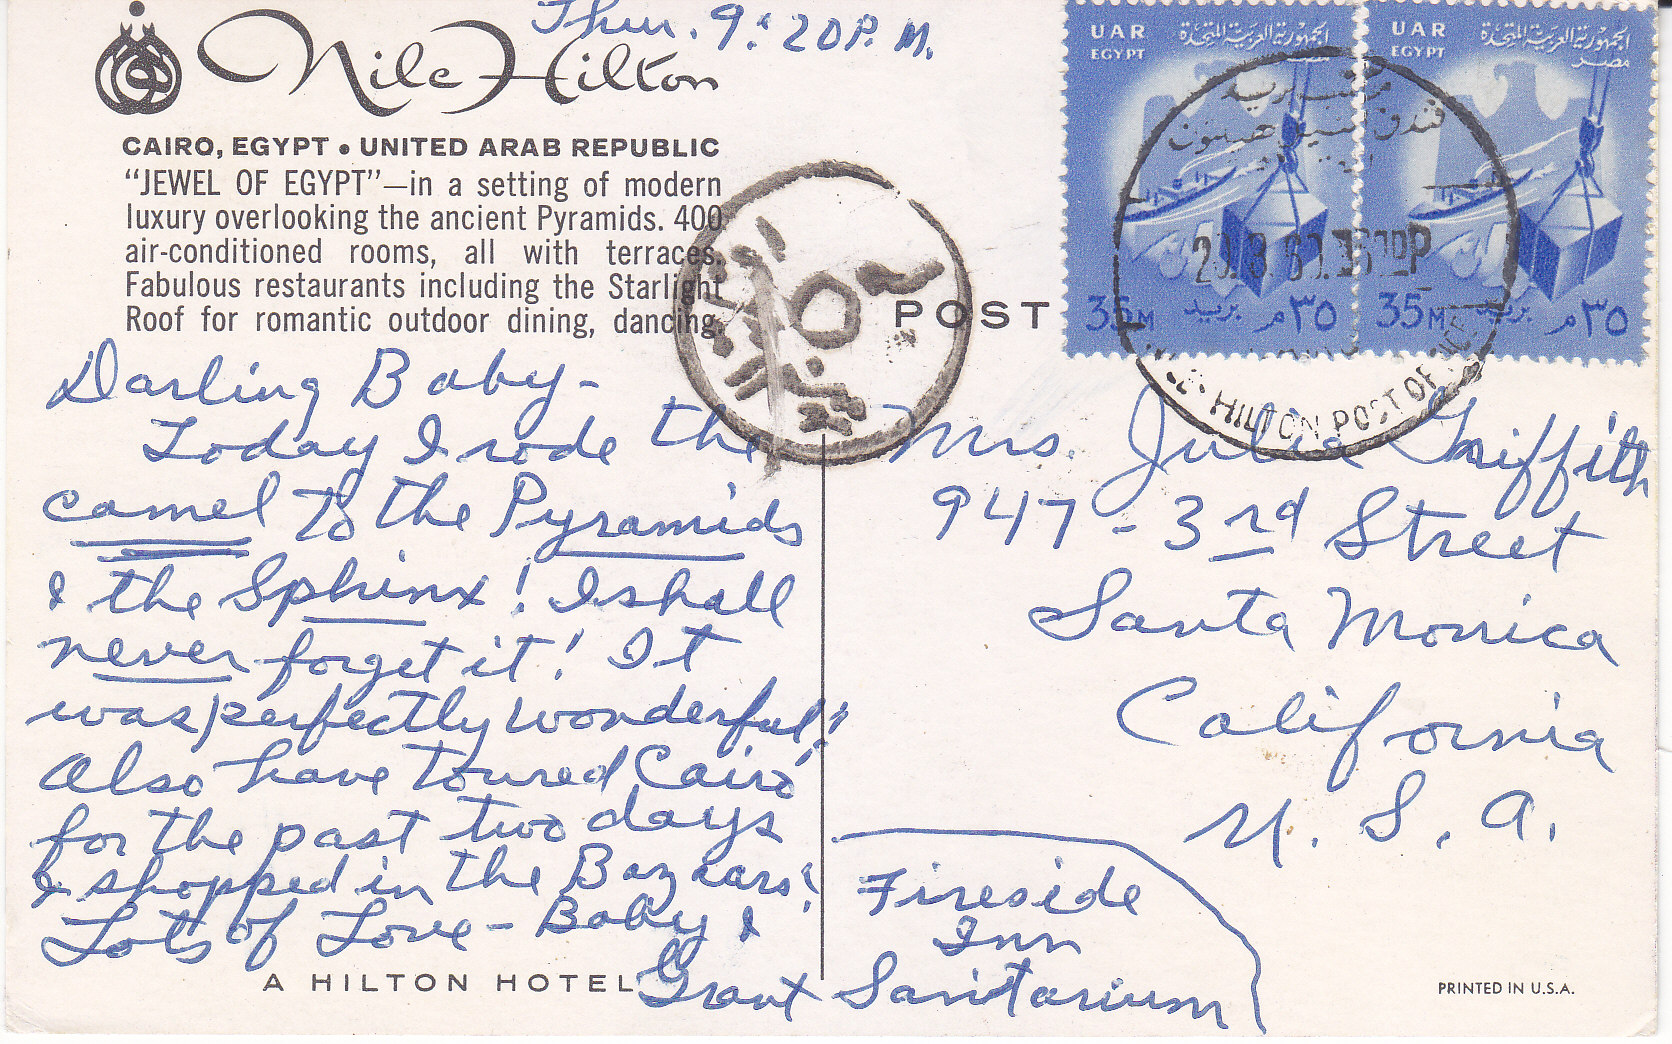 Thur. 9:20 P.M.
Nile Hilton
CAIRO, EGYPT • UNITED ARAB REPUBLIC
“JEWEL OF EGYPT”—in a setting of modern
luxury overlooking the ancient Pyramids. 400
air-conditioned rooms, all with terraces.
Fabulous restaurants including the Starlight
Roof for romantic outdoor dining, dancing.
Darling Baby-
Today I rode the
camel to the Pyramids
& the Sphinx! I shall
never forget it! It
was perfectly wonderful!
Also have toured Cairo
for the past two days
& shopped in the Bazaars!
Lots of Love - Baby &
Grant
A HILTON HOTEL
POST
UAR
EGYPT
الجمهورية العربية المتحدة
مصر
35M
بريد
٣٥ م
UAR
EGYPT
الجمهورية العربية المتحدة
مصر
35M
بريد
٣٥ م
HILTON POST OFFICE
Mrs. Julia Griffith
947 - 3rd Street
Santa Monica
California
U. S. A.
Fireside
Inn
Sanitarium
PRINTED IN U.S.A.